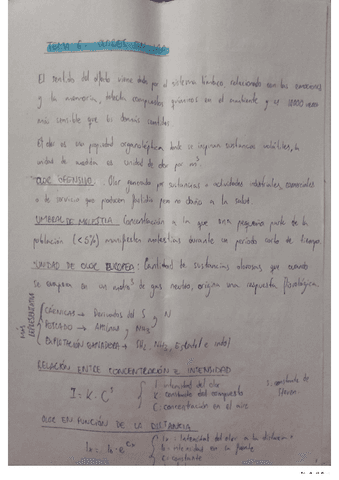 TEMA 6: OLORES EN
El sentido del olfato viene dado por el sistema límbico, relacionado con las emociones
y la memoria, detecta compuestos químicos en el ambiente y es 10000 veces
más sensible que los demás sentidos.
El olor es una propiedad organoléptica donde se inspiran sustancias volátiles, la
unidad de medida es unidad de olor por m³.
OLOR OFENSIVO. Olor generado por sustancias o actividades industriales, comerciales
o de servicio que producen fastidio pero no daños a la salud.
UMBRAL DE MOLESTIA: Concentración a la que una pequeña parte de la
población (<5%) manifiesta molestias durante un periodo corto de tiempo.
UNIDAD DE OLOR EUROPEA: Cantidad de sustancias olorosas, que cuando
se evaporan en un metro³ de gas neutro, origina una respuesta fisiológica.
MÁS REPRESENTATIVA
CÁRNICAS → Derivados del S y N
FORZADO → Aminas y NH₃
EXPLOTACIÓN GANADERA → SH₂, NH₃, Escatol e indol
RELACIÓN ENTRE CONCENTRACIÓN E INTENSIDAD
I = K · Cˢ
I intensidad del olor
K constante del compuesto
C: concentración en el aire
S: constante de
OLOR EN FUNCIÓN DE LA DISTANCIA
Io: Intensidad del olor a la distancia
Io: intensidad en su fuente
C: constante